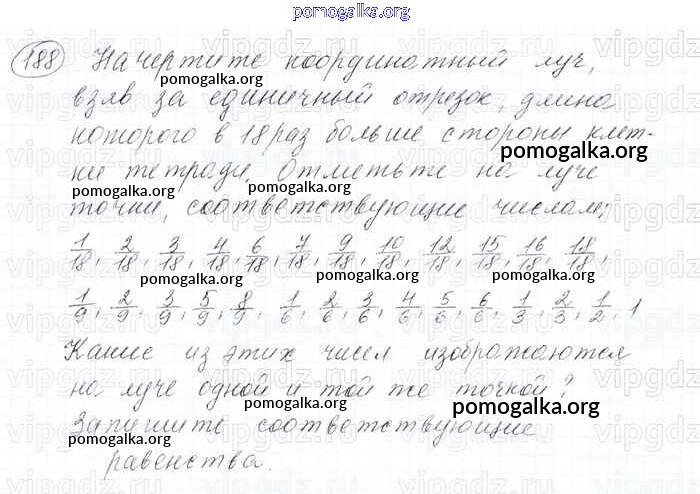 pomogalka.org
188 Начертите координатный луч,
взяв за единичный отрезок, длина
которого в 18 раз больше стороны клет-
ки тетради. Отметьте на луче
точки, соответствующие числам:
1/18, 2/18, 3/18, 4/18, 6/18, 7/18, 9/18, 10/18, 12/18, 15/18, 16/18, 18/18,
1/9, 2/9, 3/9, 5/9, 8/9, 1/6, 2/6, 3/6, 4/6, 5/6, 6/6, 1/3, 2/3, 1/2, 1
Какие из этих чисел изображаются
на луче одной и той же точкой?
Запишите соответствующие
равенства.
pomogalka.org
pomogalka.org
pomogalka.org
pomogalka.org
pomogalka.org
pomogalka.org
pomogalka.org
pomogalka.org
pomogalka.org
pomogalka.org
pomogalka.org